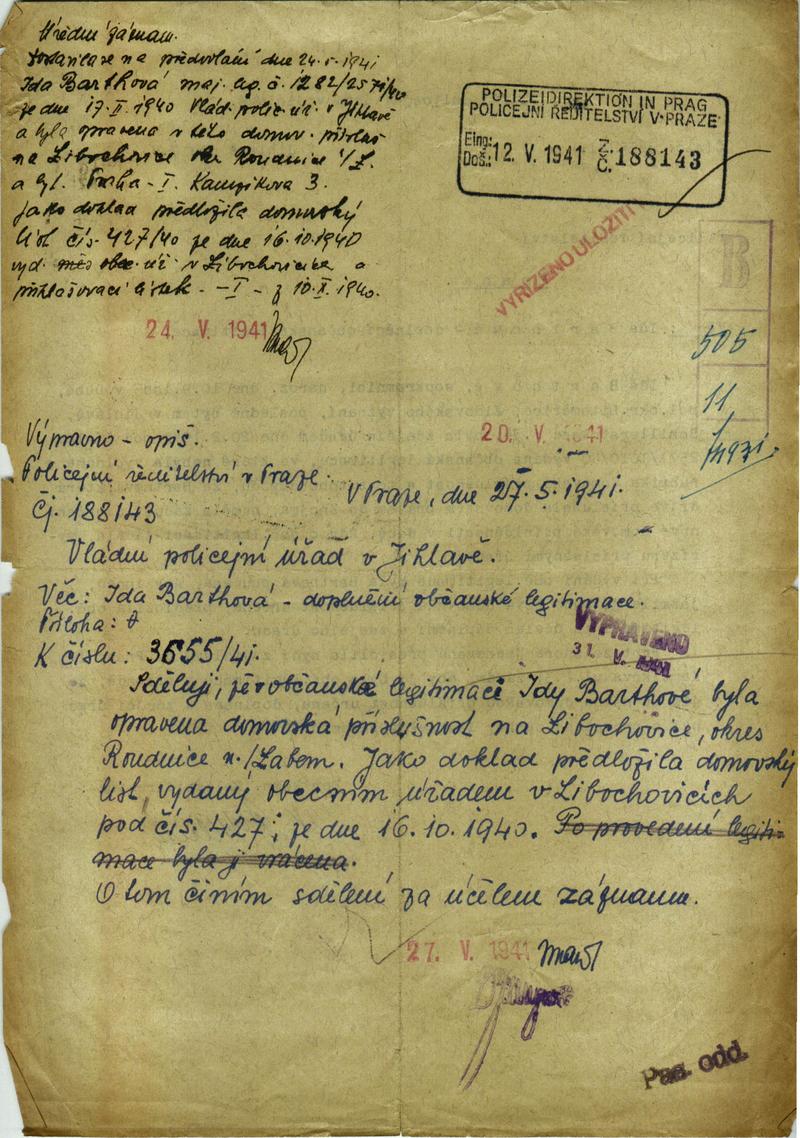 Úřední záznam.
Dostavila se na předvolání dne 24.5.1941
Ida Barthová maj. leg. č. 1282/2571/40
ze dne 17.II.1940 Vlád. polic. úř. v Jihlavě
a byla opravena v této domov. přísluš.
na Libochovice okr. Roudnice n/L.
a byt. Praha - I. Kamzíkova 3.
Jako doklad předložila domovský
list čís. 427/40 ze dne 16.10.1940
vyd. měs obec. úř. v Libochovicích a
přihlašovací lístek - I - z 10.X.1940.
24. V. 1941
POLIZEIDIREKTION IN PRAG
POLICEJNÍ ŘEDITELSTVÍ V PRAZE
Eing.:
Doš.: 12. V. 1941 Z. Č. 188143
VYŘÍZENO ULOŽITI
B
505
11
20. V. 1941
Výpravno - opiš.
Policejní ředitelství v Praze.
Čj. 188143
V Praze, dne 27.5.1941.
Vládní policejní úřad v Jihlavě.
Věc: Ida Barthová - doplnění občanské legitimace.
Příloha: 0
K číslu: 3655/41.
VYPRAVENO
31. V. 1941
Sděluji, že v občanské legitimaci Idy Barthové byla
opravena domovská příslušnost na Libochovice, okres
Roudnice n./Labem. Jako doklad předložila domovský
list, vydaný obecním úřadem v Libochovicích
pod čís. 427, ze dne 16.10.1940. Po provedení legiti-
mace byla jí vrácena.
O tom činím sdělení za účelem záznamu.
27. V. 1941
Pas. odd.